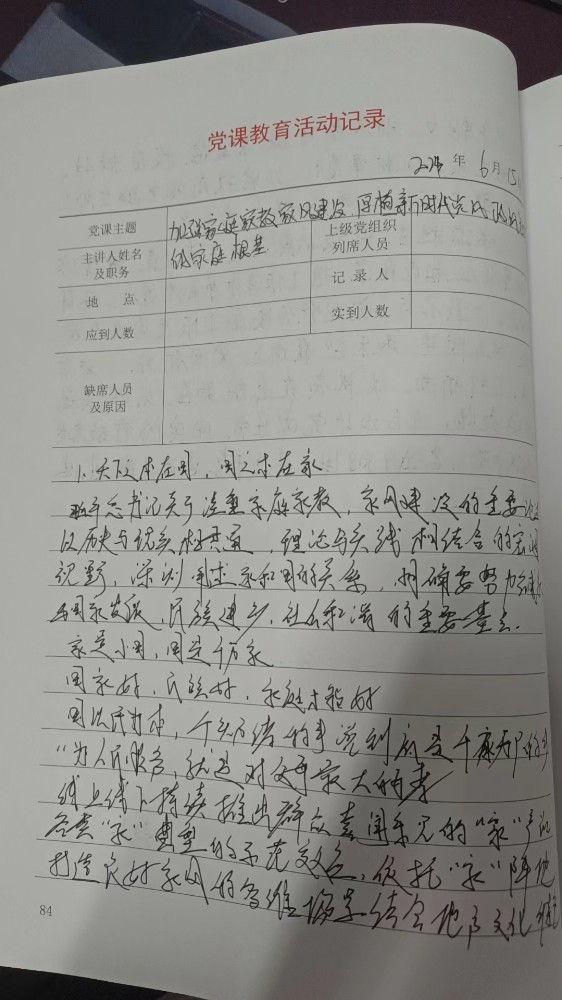 党课教育活动记录
年 6月15
党课主题 加强家庭家教家风建设 厚植新时代党风
主讲人姓名及职务 的家庭根基 上级党组织列席人员
地 点 记 录 人
应到人数 实到人数
缺席人员及原因
1. 天下之本在国，国之本在家
总书记关于注重家庭家教，家风建设的重要论
历史与现实相贯通，理论与实践相结合的宏阔
视野，深刻阐述家和国的关系，明确要努力
国家发展，民族进步，社会和谐的重要基点.
家是小国，国是千万家
国家好，民族好，家庭才能好
国以民为本，千头万绪的事说到底是千家万户的事
"为人民服务，就是对父母最大的孝
线上线下持续推出群众喜闻乐见的"家"产品
各类"家"典型的示范效应，依托"家"阵地
打造良好家风的 结合地方文化
84